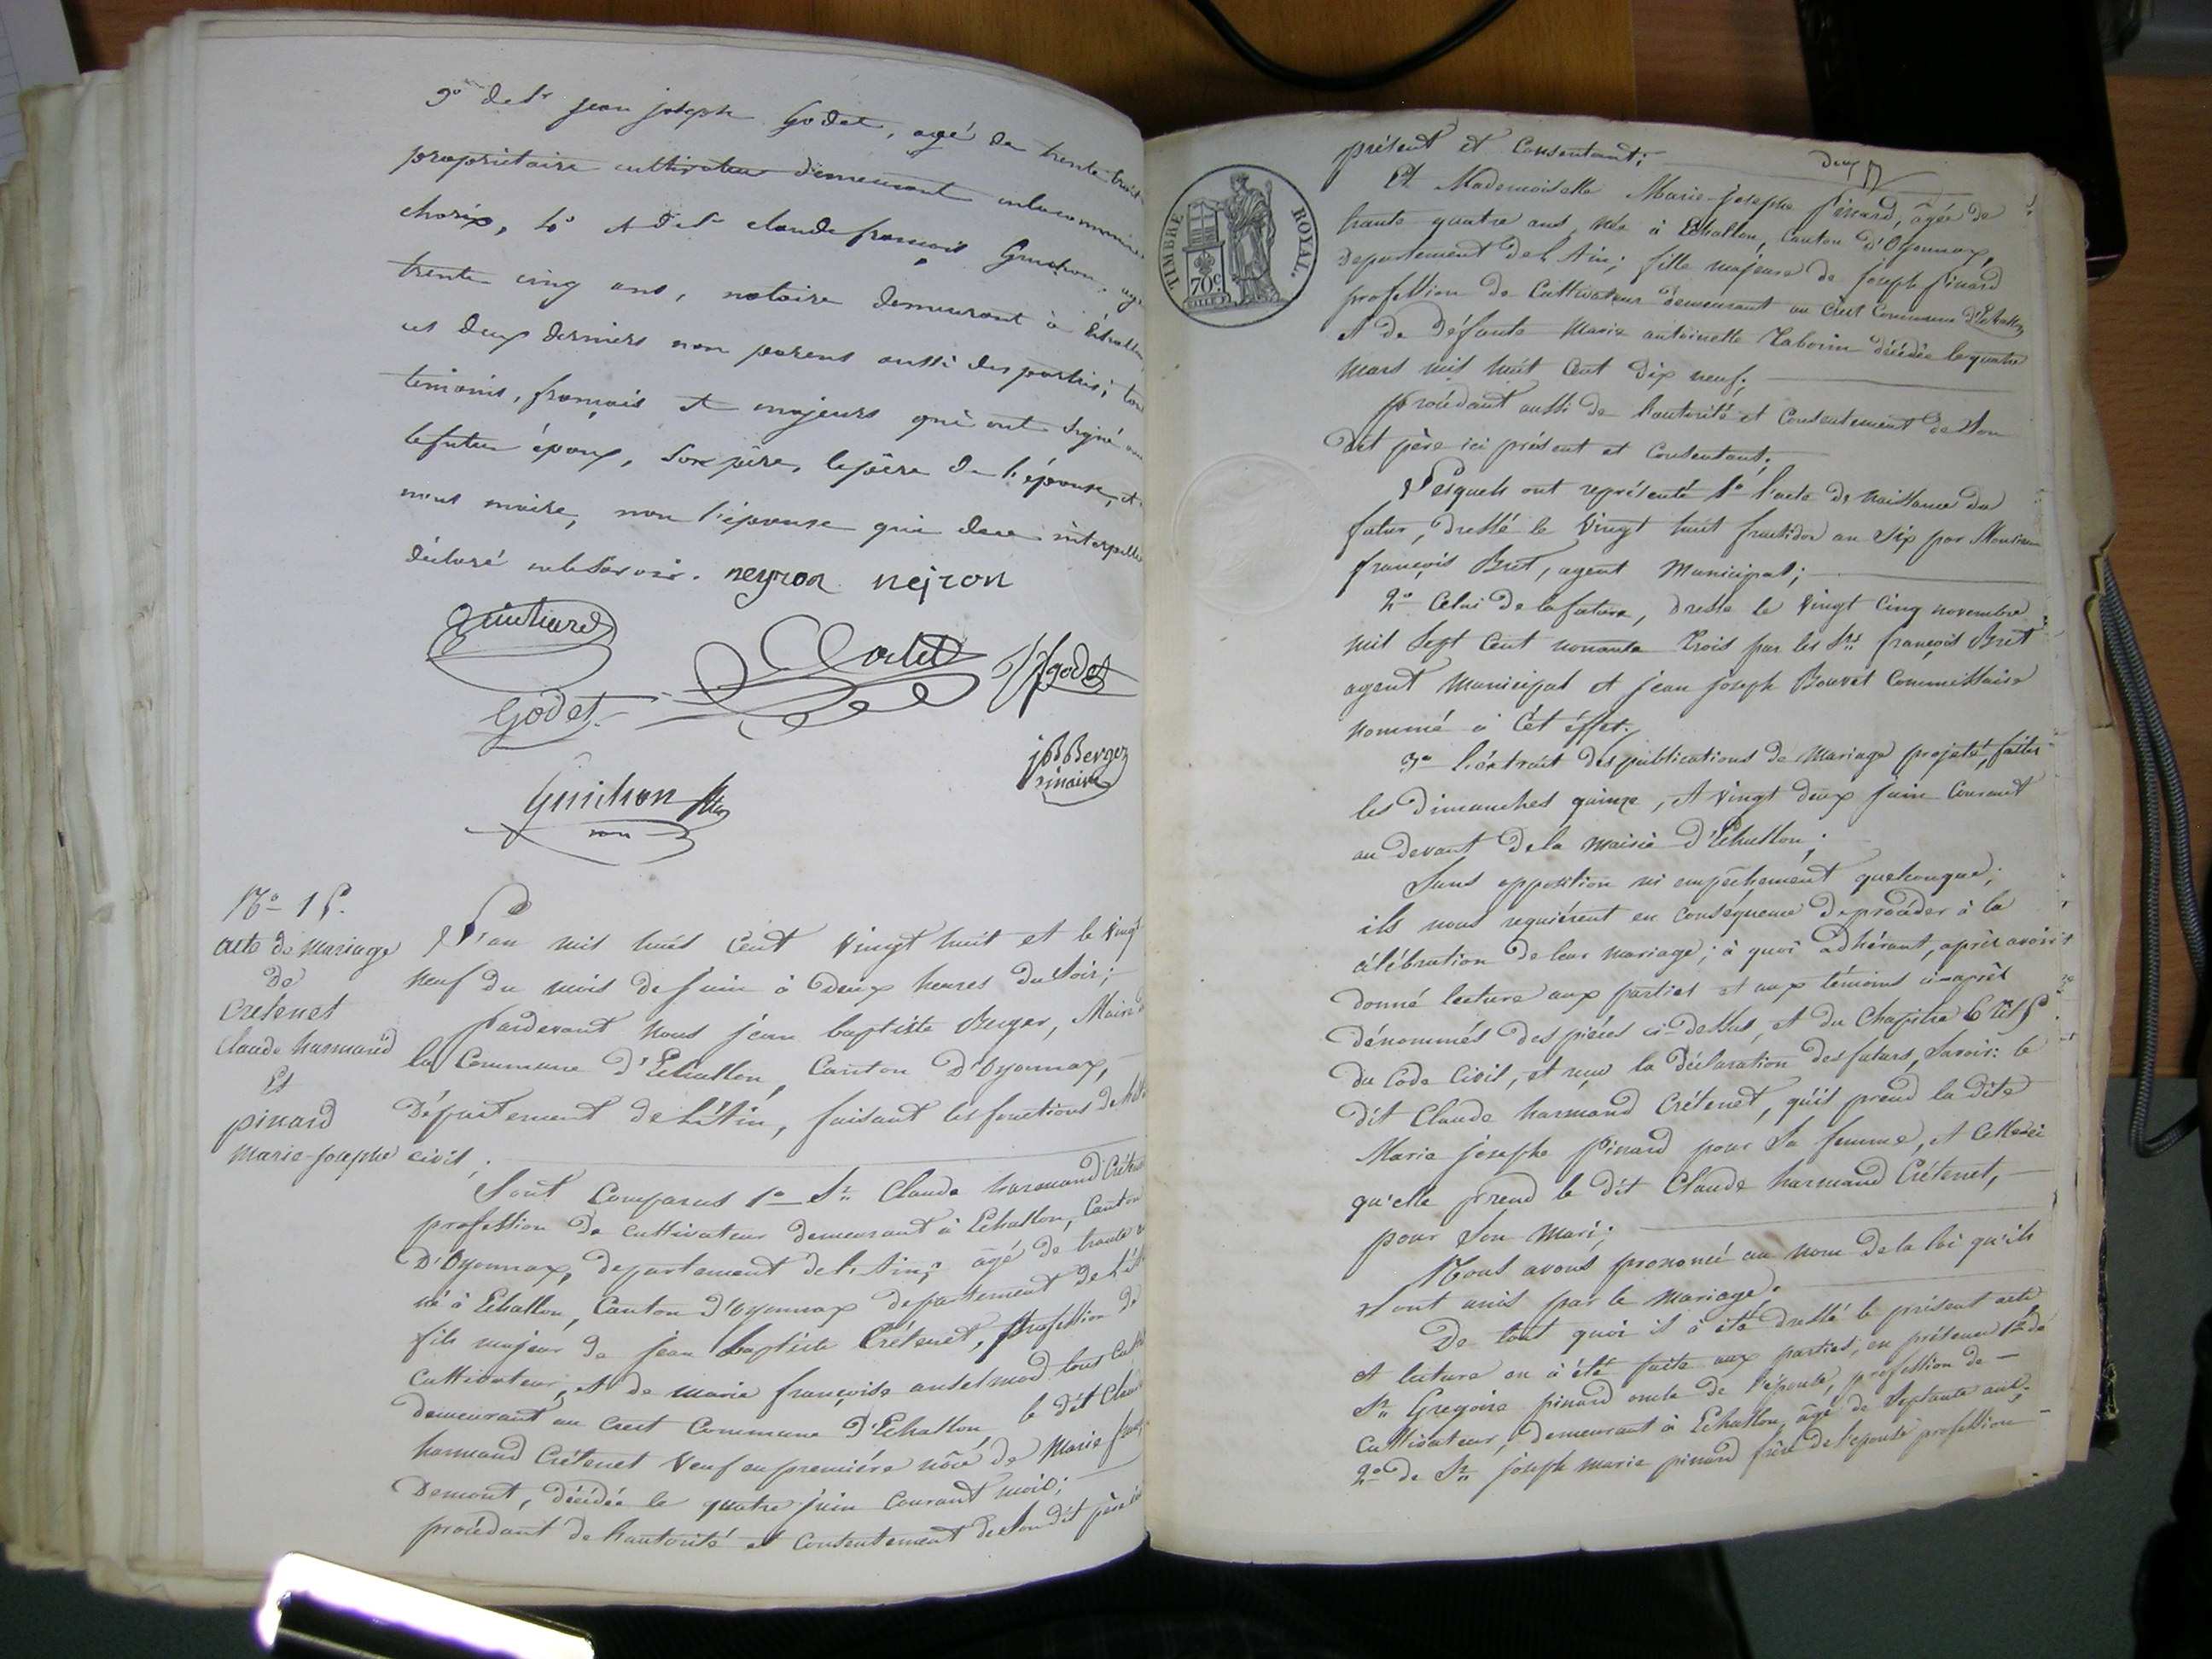 3º de Sr jean joseph Godet, agé de trente huit
propriétaire cultivateur demeurant
choix, 4º et de Sr claude françois Guichon, agé
trente cinq ans, notaire demeurant à Echallon
ces deux derniers non parens aussi des parties; tous
temoins, français et majeurs qui ont signé avec
le futur époux, son père, le père de l'épouse, et
nous maire, non l'épouse qui de ce interpellée
déclaré ne le savoir. neyron nejron
Godet
Godet
jjgodet
Guichon
jBBerger
maire
Nº 15.
acte de Mariage
de
Crétenet
Claude harmand
Et
pinard
Marie-josephe
L'an mil huit Cent vingt huit et le vingt
neuf du mois de juin à Deux heures du Soir;
Pardevant Nous jean baptiste Berger, Maire de
la Commune d'Echallon, Canton D'Oyonnax,
Département de L'Ain, faisant les fonctions de
civil;
Sont Comparus 1º Sr. Claude harmand Crétenet
profession de cultivateur demeurant à Echallon, Canton
D'Oyonnax, departement de l'Ain; âgé de trente
né à Echallon, Canton d'Oyonnax departement de
fils majeur de jean baptiste Crétenet, profession de
Cultivateur, et de marie françoise anselmod tous
demeurant au Crest Commune d'Echallon, le dit Claude
harmand Crétenet Veuf en première nôce de Marie
Demont, décédée le quatre juin Courant mois;
procédant de l'autorité et Consentement de son dit père
TIMBRE ROYAL.
70c
présent et Consentant;
Et Mademoiselle Marie-josephe Pinard, âgée de
trente quatre ans née à Echallon, Canton d'Oyonnax,
Departement de l'Ain; fille majeure de joseph pinard
profession de Cultivateur demeurant au Crest Commune d'Echallon
et de défunte Marie antoinette Taborin décédée le quatre
Mars mil huit Cent dix neuf;
procédant aussi de l'autorité et Consentement de son
dit père ici présent et Consentant;
Lesquels ont représenté 1º l'acte de Naissance du
futur, dressé le vingt huit fructidor an Six par Monsieur
françois Bret, agent Municipal;
2º Celui de la future, dressé le vingt Cinq novembre
mil Sept Cent nonante trois par les Srs. françois Bret
agent Municipal et jean joseph Bouvet Commissaire
nommé à Cèt éffet.
3º L'éxtrait des publications de Mariage projeté, faites
les dimanches quinze, et vingt deux juin Courant
au devant de la mairie d'Echallon;
Sans opposition ni empêchement quelconque;
ils nous requièrent en conséquence de procéder à la
célébration de leur mariage; à quoi adhérant, après avoir
donné lecture aux parties et aux témoins ci-après
dénommés des pièces ci-dessus, et du Chapitre 6
du Code Civil, et reçu la déclaration des futurs, Savoir: le
dit Claude harmand Crétenet, qu'il prend la dite
Marie josephe Pinard pour Sa femme, et Celle-ci
qu'elle prend le dit Claude harmand Crétenet,
pour Son Mari;
Nous avons prononcé au nom de la loi qu'ils
sont unis par le Mariage.
De tout quoi il à été dressé le présent acte
et lecture en à été faite aux parties, en présence 1º de
Sr. Gregoire pinard oncle de l'épouse, profession de
Cultivateur, demeurant à Echallon, âgé de Septante ans;
2º de Sr. joseph marie pinard frère de l'épouse profession